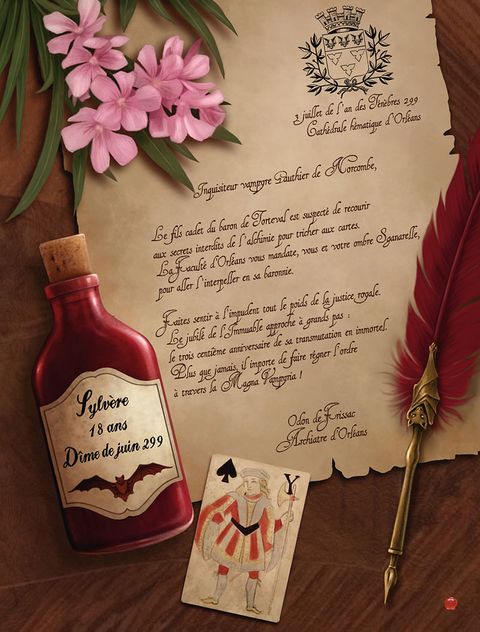 3 juillet de l'an des Ténèbres 299
Cathédrale hématique d'Orléans
Inquisiteur vampyre Pauthier de Morcombe,
Le fils cadet du baron de Torteval est suspecté de recourir
aux secrets interdits de l'alchimie pour tricher aux cartes.
La Faculté d'Orléans vous mandate, vous et votre ombre Sganarelle,
pour aller l'interpeller en sa baronnie.
Faites sentir à l'impudent tout le poids de la justice royale.
Le jubilé de l'Immuable approche à grands pas :
le trois centième anniversaire de sa transmutation en immortel.
Plus que jamais, il importe de faire régner l'ordre
à travers la Magna Vampyria !
Odon de Frissac
Archiatre d'Orléans
Sylvère
18 ans
Dîme de juin 299
Y